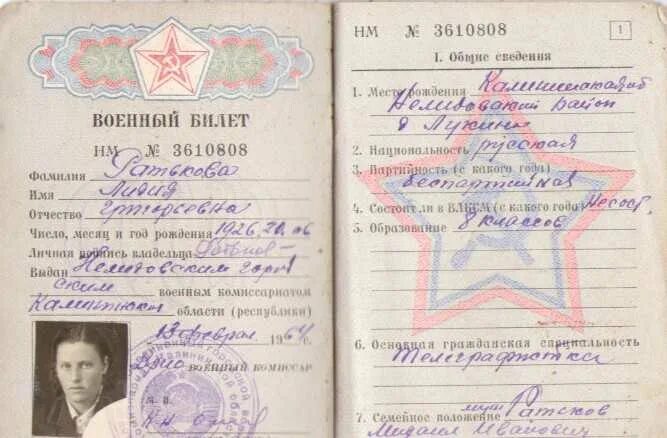 ВОЕННЫЙ БИЛЕТ
НМ № 3610808
Фамилия Ратькова
Имя Лидия
Отчество Григорьевна
Число, месяц и год рождения 1926, 20. 06
Личная подпись владельца
Выдан Нелидовским гор
ским военным комиссариатом
Калининской области (республики)
13 февраля 1964 г.
военный комиссар
М. П.
НМ № 3610808
1
I. Общие сведения
1. Место рождения Калининская об
Нелидовский район
д Лукино
2. Национальность русская
3. Партийность (с какого года)
беспартийная
4. Состоит ли в ВЛКСМ (с какого года) Не сост.
5. Образование 8 классов
6. Основная гражданская специальность
Телеграфистка
7. Семейное положение муж Ратьков
Михаил Иванович